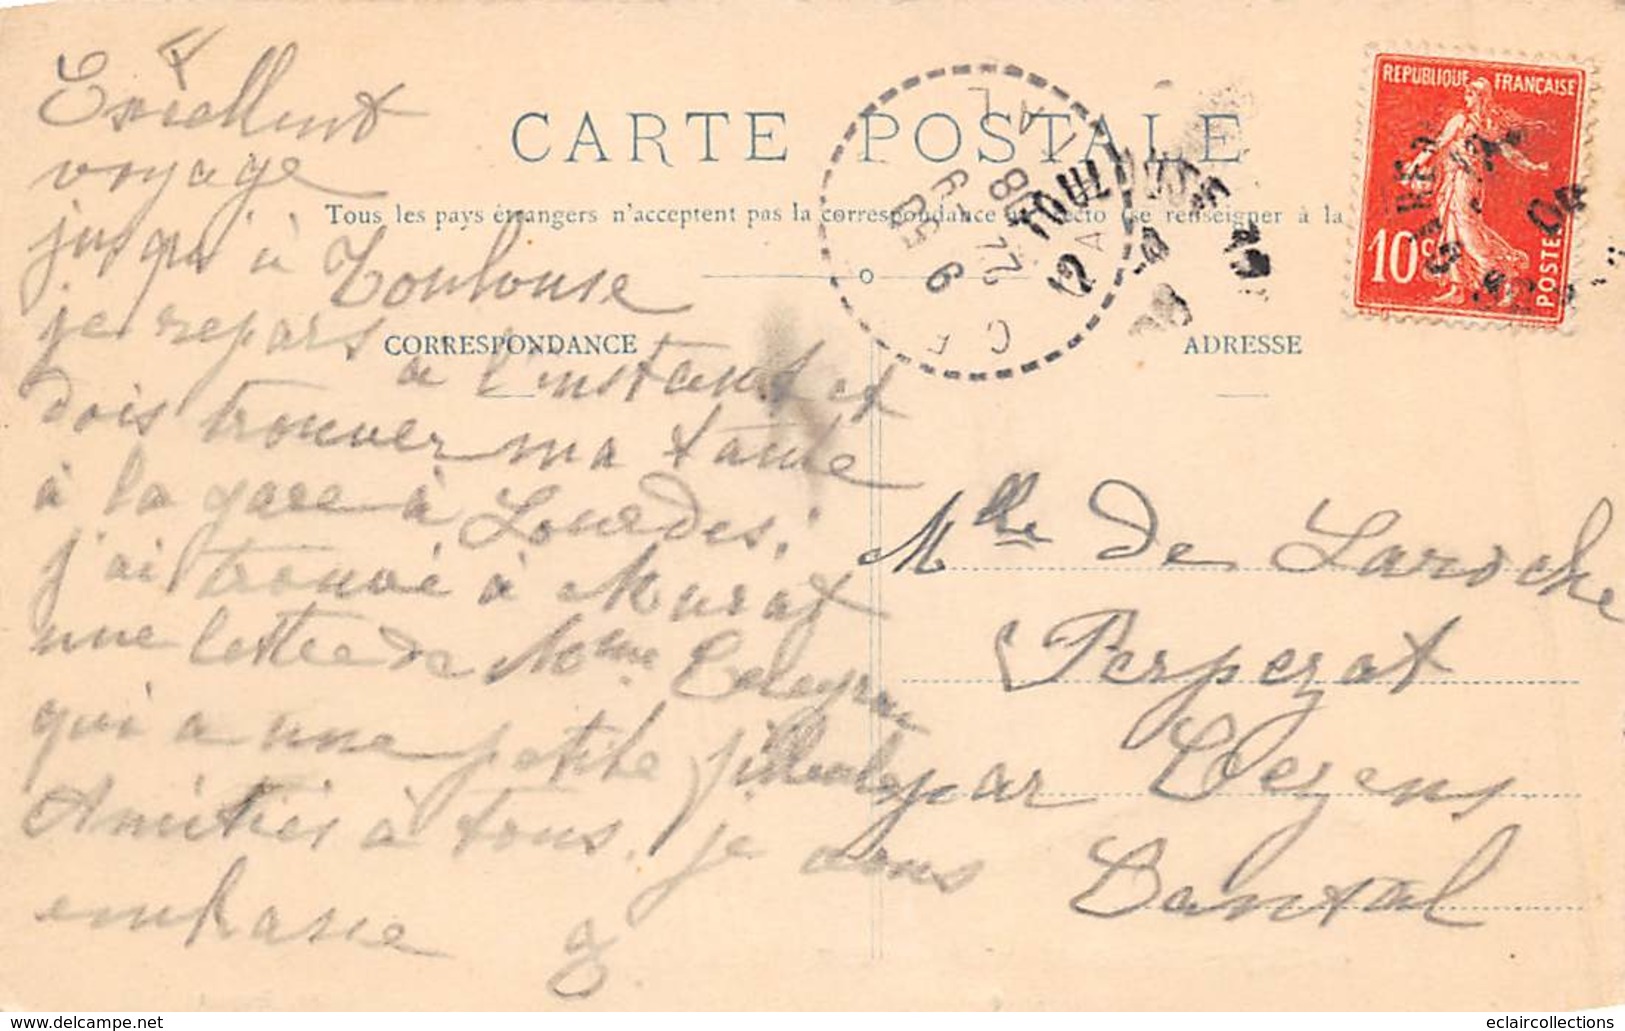 Excellent
voyage
jusqu'à Toulouse
je repars
à l'instant et
dois trouver ma tante
à la gare à Lourdes.
j'ai trouvé à Murat
une lettre de Mme
qui a une petite filleule
Amitiés à tous. je vous
embrasse
CARTE POSTALE
Tous les pays étrangers n'acceptent pas la correspondance au recto (se renseigner à la
CORRESPONDANCE
ADRESSE
REPUBLIQUE FRANÇAISE
10c
POSTES
TOULOUSE
Mlle de Laroche
Perpezat
par Vezens
Cantal
www.delcampe.net
eclaircollections